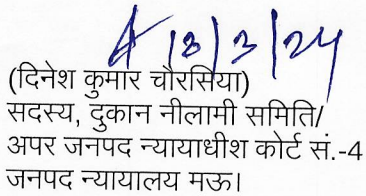 18/3/24
(दिनेश कुमार चौरसिया)
सदस्य, दुकान नीलामी समिति/
अपर जनपद न्यायाधीश कोर्ट सं.-4
जनपद न्यायालय मऊ।